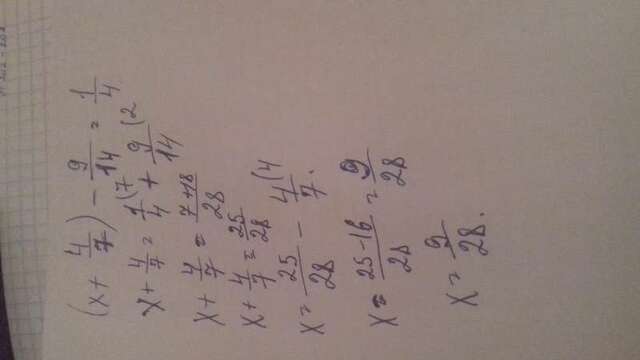 (x + 4/7) - 9/14 = 1/4
x + 4/7 = 1/4 (7 + 9/14 (2
x + 4/7 = 7+18/28
x + 4/7 = 25/28
x = 25/28 - 4/7 (4 .
x = 25-16/28 = 9/28
x = 9/28 .